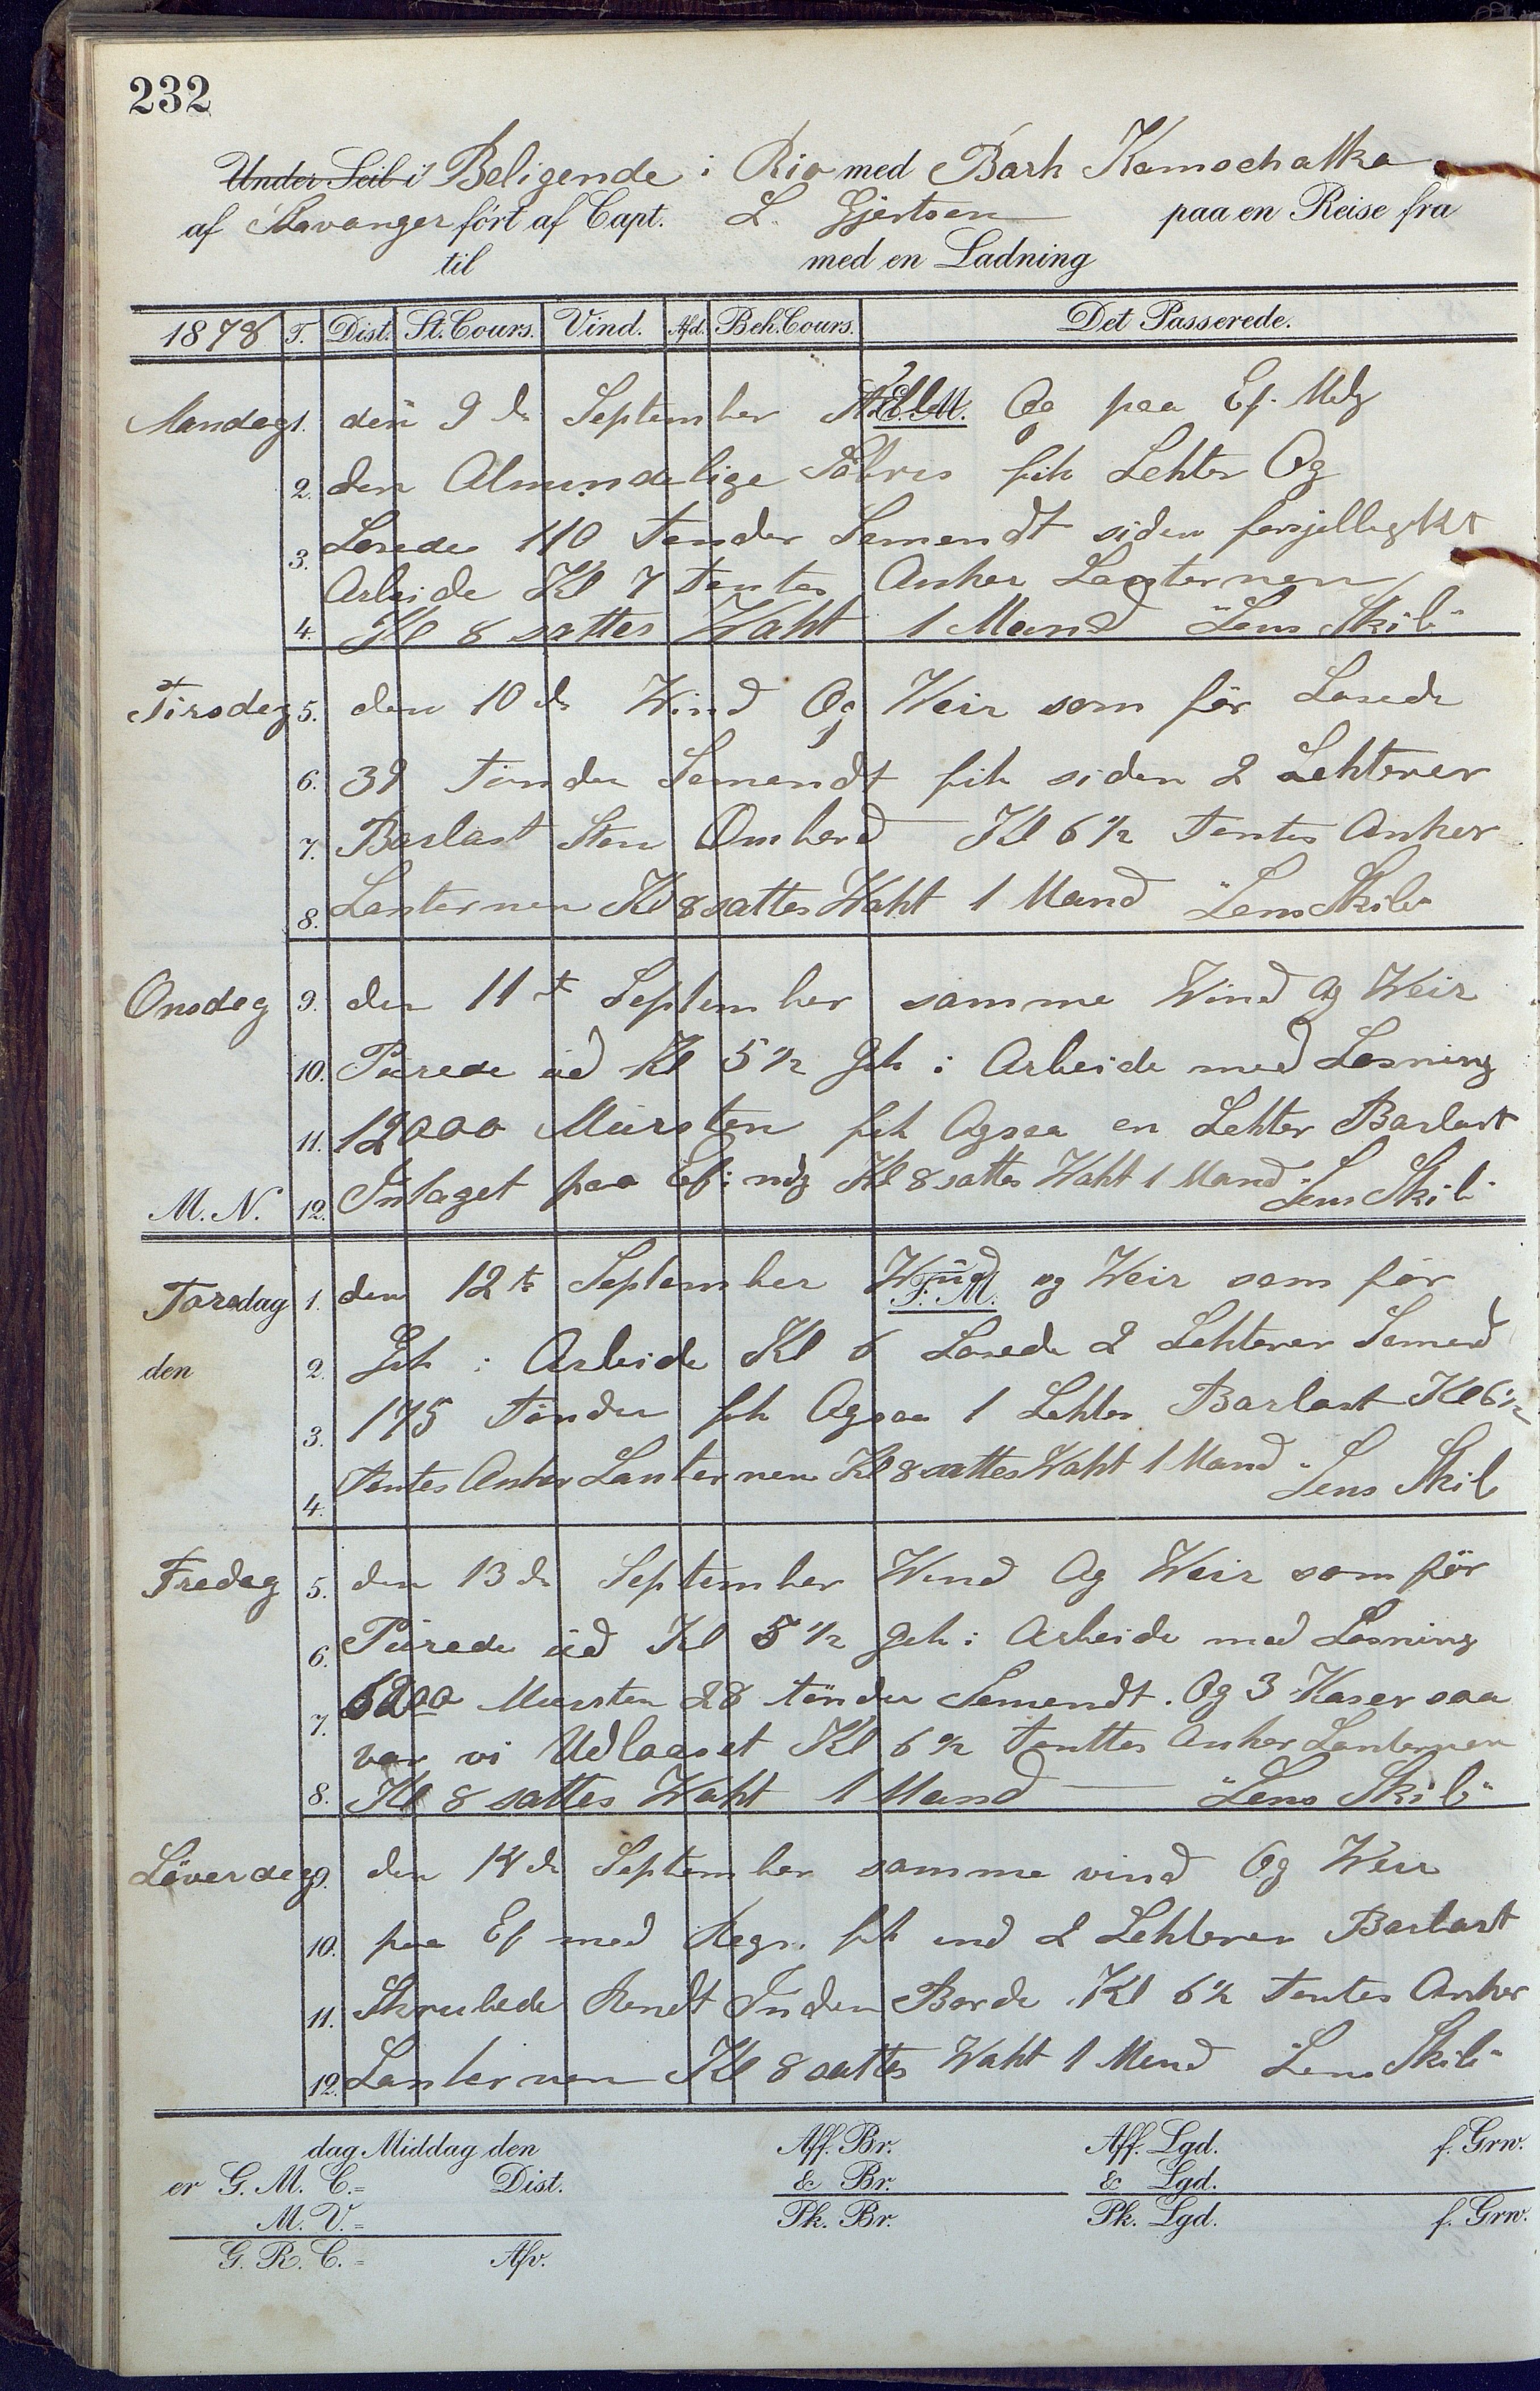 232
Under Seil i Beligende i Rio med Bark Kamschatka
af Stavanger fört af Capt. L. Gjertsen paa en Reise fra
til med en Ladning
1878 T. Dist. St. Cours. Vind. Afd. Beh. Cours. Det Passerede.
Mandag 1. den 9 de September E.M. Og paa Ef. Mdg
2. den Almindelige Söbris fik Lekter Og
3. Losede 110 Tønder Semendt siden forsjelligkt
Arbeide Kl 7 tentes Anker Lanternen
4. Kl 8 sattes Waht 1 Mand "Lens Skib"
Tirsdag 5. den 10 de Wind Og Weir som för Losede
6. 39 Tönder Semendt fik siden 2 Lehterer
7. Barlast Sten Ombord Kl 6 1/2 tentes Anker
8. Lanternen Kl 8 sattes Waht 1 Mand "Lens Skib"
Onsdag 9. den 11 te September samme Wind Og Weir
10. Purede ud Kl 5 1/2 Gik i Arbeide med Losning
11. 12000 Mürsten fik Ogsaa en Lehter Barlast
M. N. 12. Intaget paa Ef: mdg Kl 8 sattes Waht 1 Mand "Lens Skib"
Torsdag 1. den 12 te September Wind F. M. og Weir som för
den 2. Gik i Arbeide Kl 6 Losede 2 Lehterer Semend
3. 175 Tönder fik Ogsaa 1 Lehter Barlast Kl 6 1/2
4. tentes Anker Lanternen Kl 8 sattes Waht 1 Mand "Lens Skib
Fredag 5. den 13 de September Wind Og Weir som för
6. Pürede üd Kl 5 1/2 Gik i Arbeide med Losning
7. 6200 Mursten 28 tönder Semendt. Og 3 Kaser saa
var vi Udlosset Kl 6 1/2 tenttes Anker Lanternen
8. Kl 8 sattes Waht 1 Mand "Lens Skib"
Löverdag 9. den 14 de September samme vind Og Weir
10. paa Ef med Regn fik ind 2 Lehterer Barlast
11. Skrubede Rendt Inden Borde Kl 6 1/2 tentes Anker
12. Lanternen Kl 8 sattes Waht 1 Mand "Lens Skib"
dag Middag den Aff. Br. Aff. Lgd. f. Grw.
er G. M. C.= Dist. & Br. & Lgd.
M. V.= Pk. Br. Pk. Lgd. f. Grw.
G. R. C.= Afv.